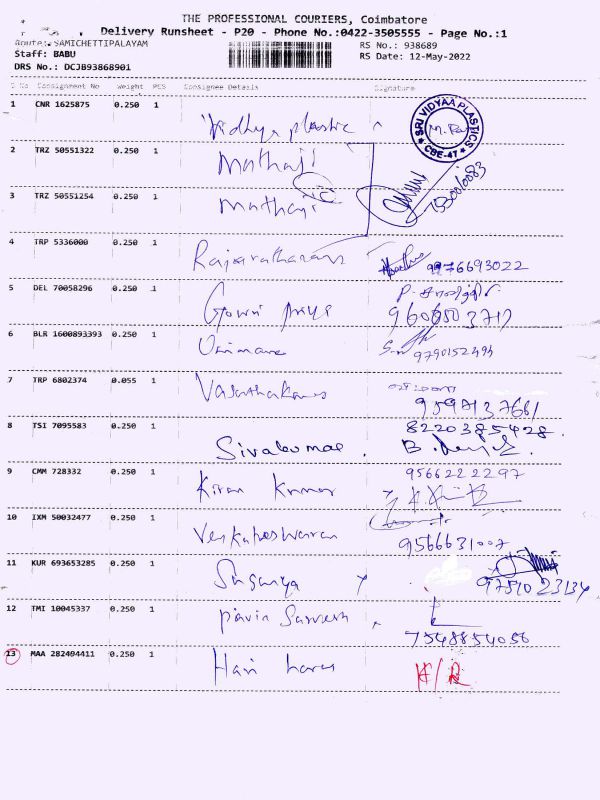 THE PROFESSIONAL COURIERS, Coimbatore
Delivery Runsheet - P20 - Phone No.:0422-3505555 - Page No.:1
Route: SAMICHETTIPALAYAM
RS No.: 938689
Staff: BABU
RS Date: 12-May-2022
DRS No.: DCJB93868901
S No Consignment No Weight PCS Consignee Details Signature
1 CNR 1625875 0.250 1 Vidhya plastic
SRI VIDYAA PLASTICS
CBE-47
2 TRZ 50551322 0.250 1 Mathaji
3 TRZ 50551254 0.250 1 Mathaji
4 TRP 5336000 0.250 1 9976693022
5 DEL 70058296 .250 1 Gowri priya
6 BLR 1600893393 0.250 1 9790152494
7 TRP 6802374 0.055 1 9597137661
8 TSI 7095583 0.250 1 Sivakumar 8220385428
9 CMM 728332 0.250 1 Kiran Kumar 9566222297
10 IXM 50032477 0.250 1 Venkateswaran 9566631007
11 KUR 693653285 0.250 1 9751023134
12 TMI 10045337 0.250 1 7548854056
13 MAA 282494411 0.250 1 Hari haran